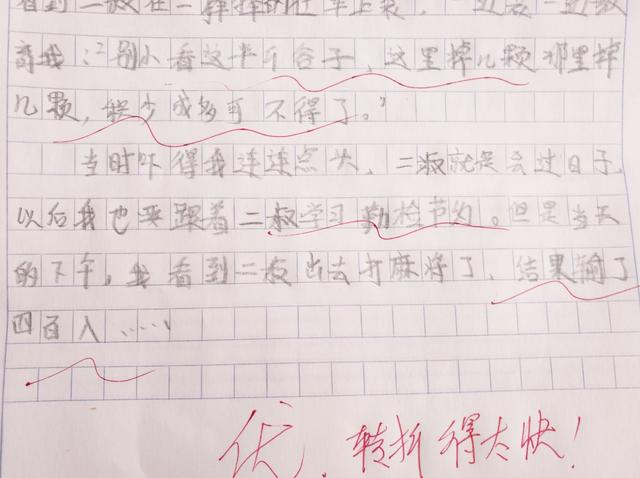 看到二叔在一
育我：“别小看这半斤谷子，这里掉几颗那里掉
几颗，积少成多可不得了。”
当时吓得我连连点头，二叔就是会过日子，
以后我也要跟着二叔学习勤检节约。但是当天
的下午，我看到二叔出去打麻将了，结果输了
四百入……
优，转折得太快！